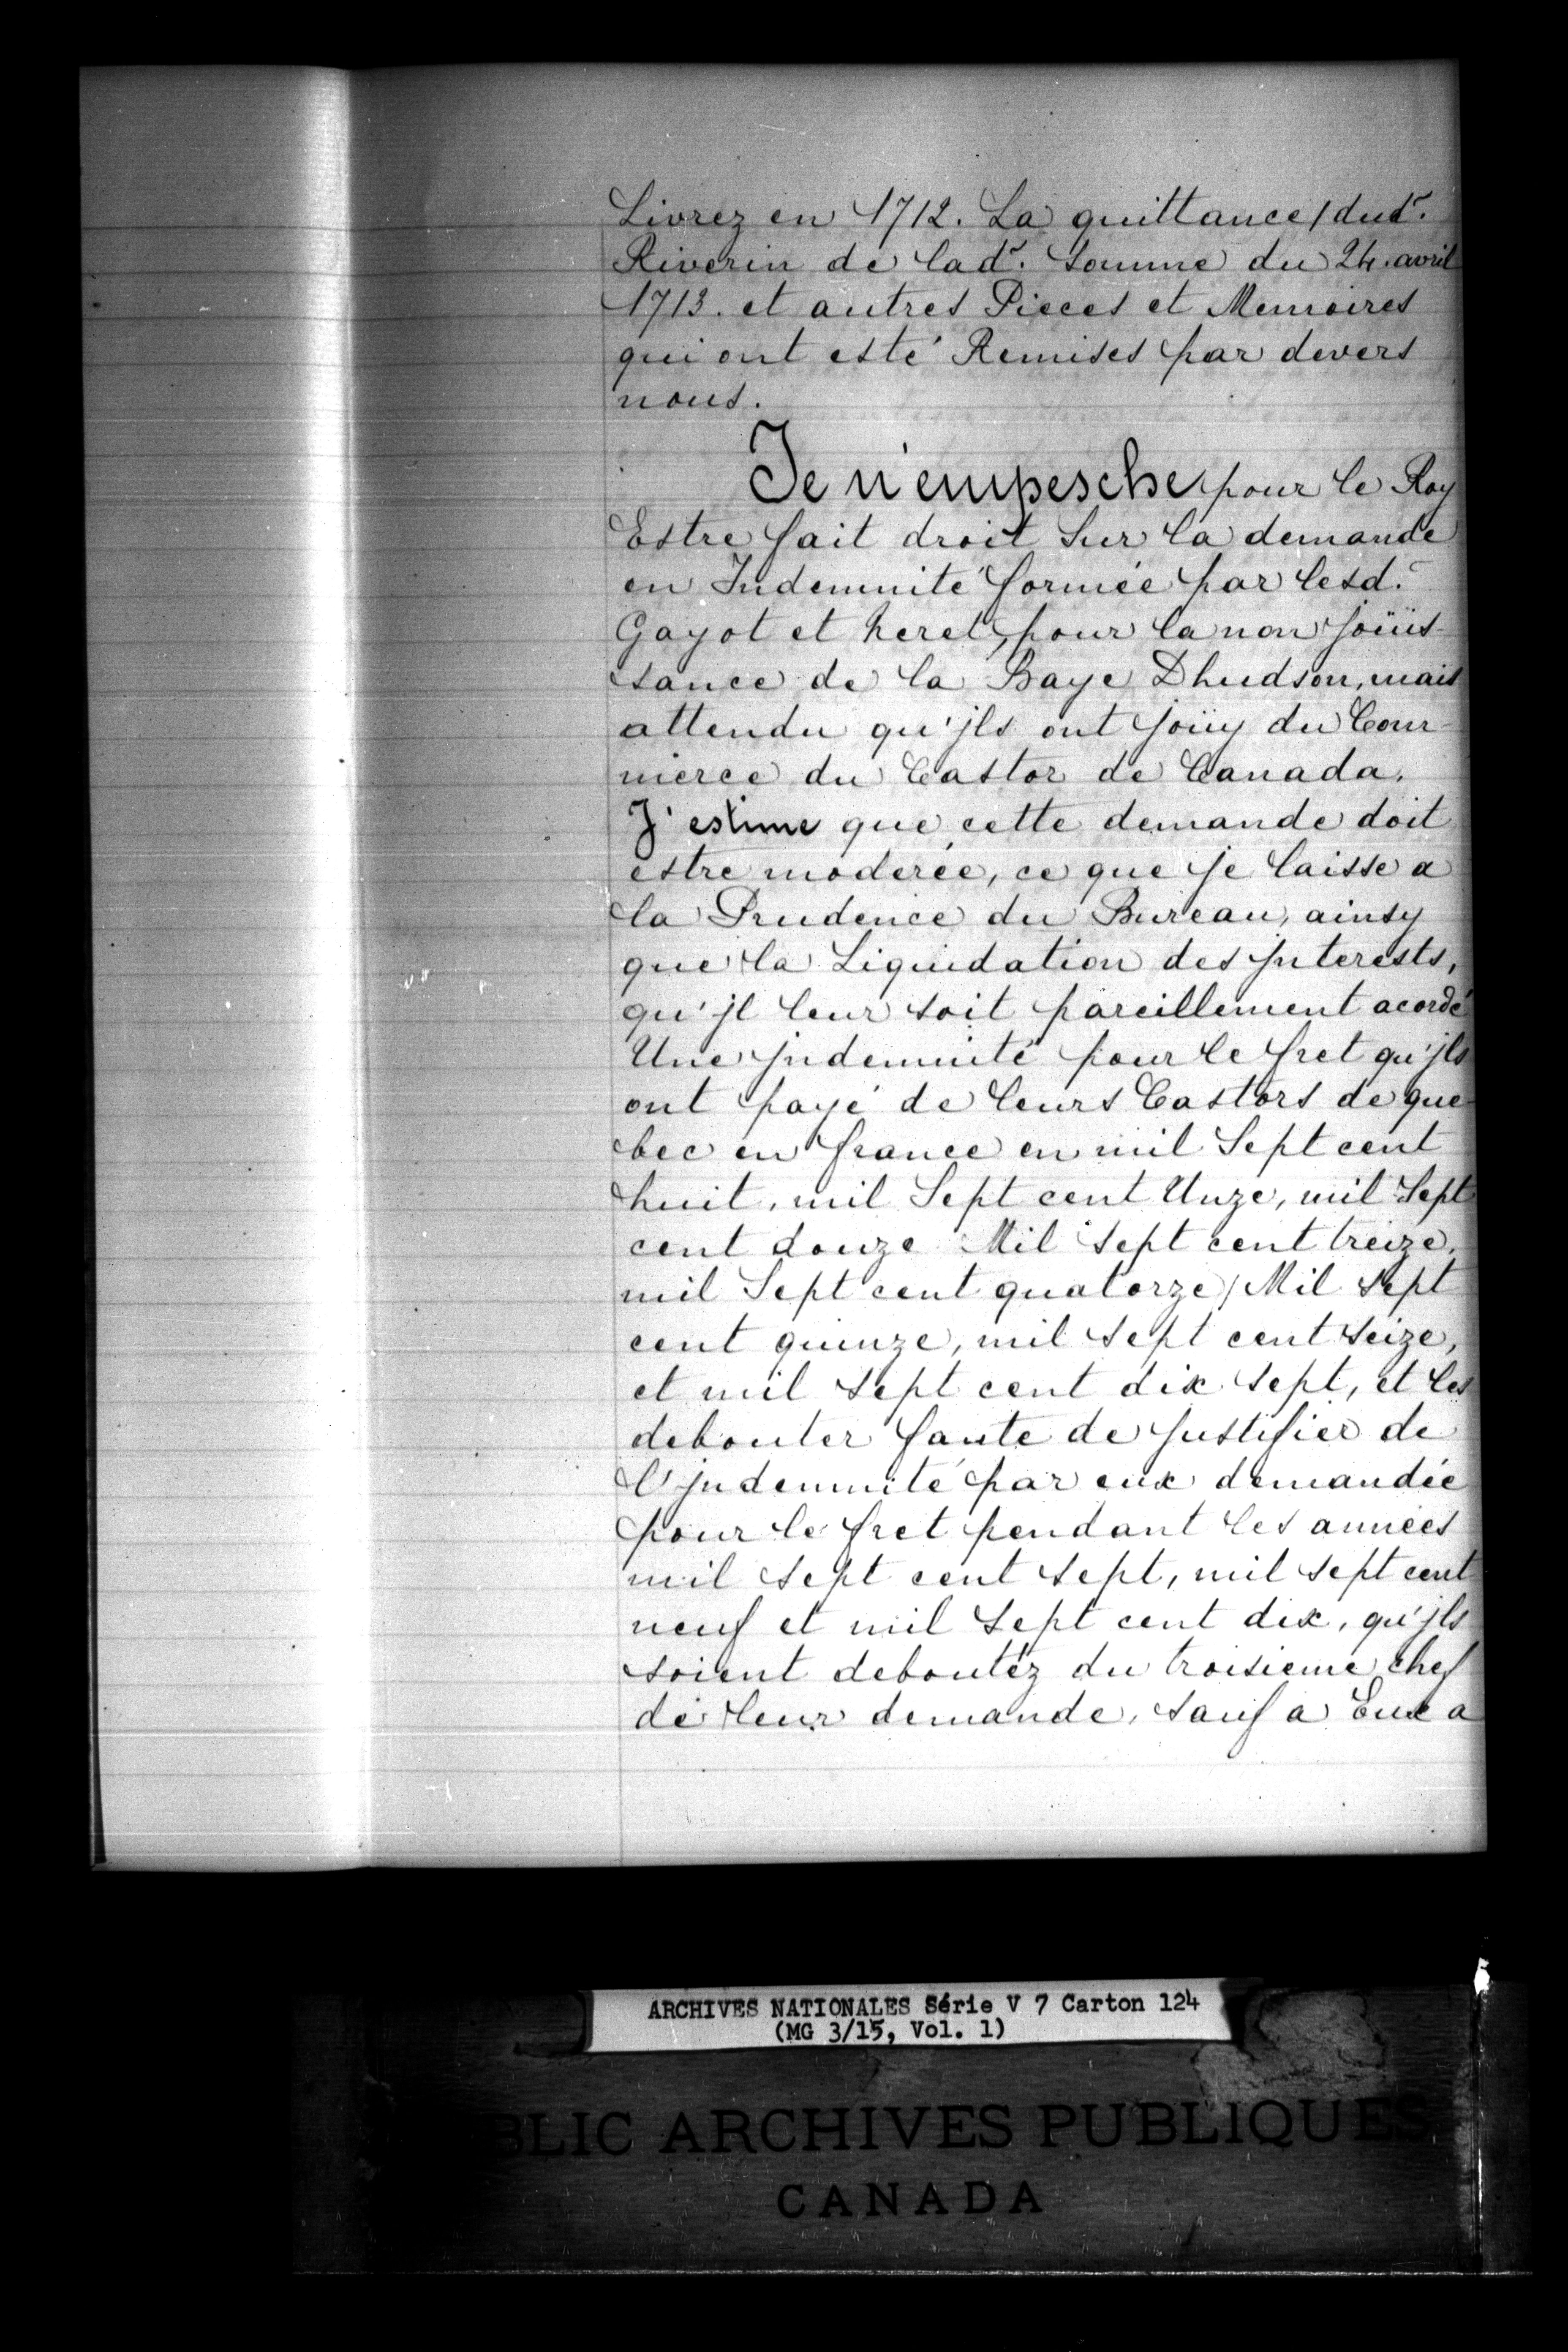 Livrez en 1712. La quittance dud.
Riverin de lad. Somme du 24. avril
1713. et autres Pieces et Memoires
qui ont esté Remises par devers
nous.
Je n'empesche pour le Roy
Estre fait droit Sur la demande
en Indemnité formée par lesd.
Gayot et heret, pour la non joüis-
sance de la Baye Dhudson, mais
attendu qu'jls ont joüy du Com-
merce du Castor de Canada.
J'estime que cette demande doit
estre moderée, ce que je laisse a
la Prudence du Bureau, ainsy
que la Liquidation des jnterests,
qu'jl leur soit pareillement acordé
Une jndemnité pour le fret qu'jls
ont payé de leurs Castors de que-
bec en france en mil Sept cent
huit, mil Sept cent Unze, mil Sept
cent douze Mil Sept cent treize,
mil Sept cent quatorze, Mil Sept
cent quinze, mil sept cent seize,
et mil sept cent dix sept, et les
debouter faute de justifier de
l'jndemnité par eux demandée
pour le fret pendant les années
mil sept cent sept, mil sept cent
neuf et mil sept cent dix, qu'jls
soient deboutéz du troisieme chef
de leur demande, sauf a Eux a
ARCHIVES NATIONALES Série V 7 Carton 124
(MG 3/15, Vol. 1)
BLIC ARCHIVES PUBLIQUES
CANADA